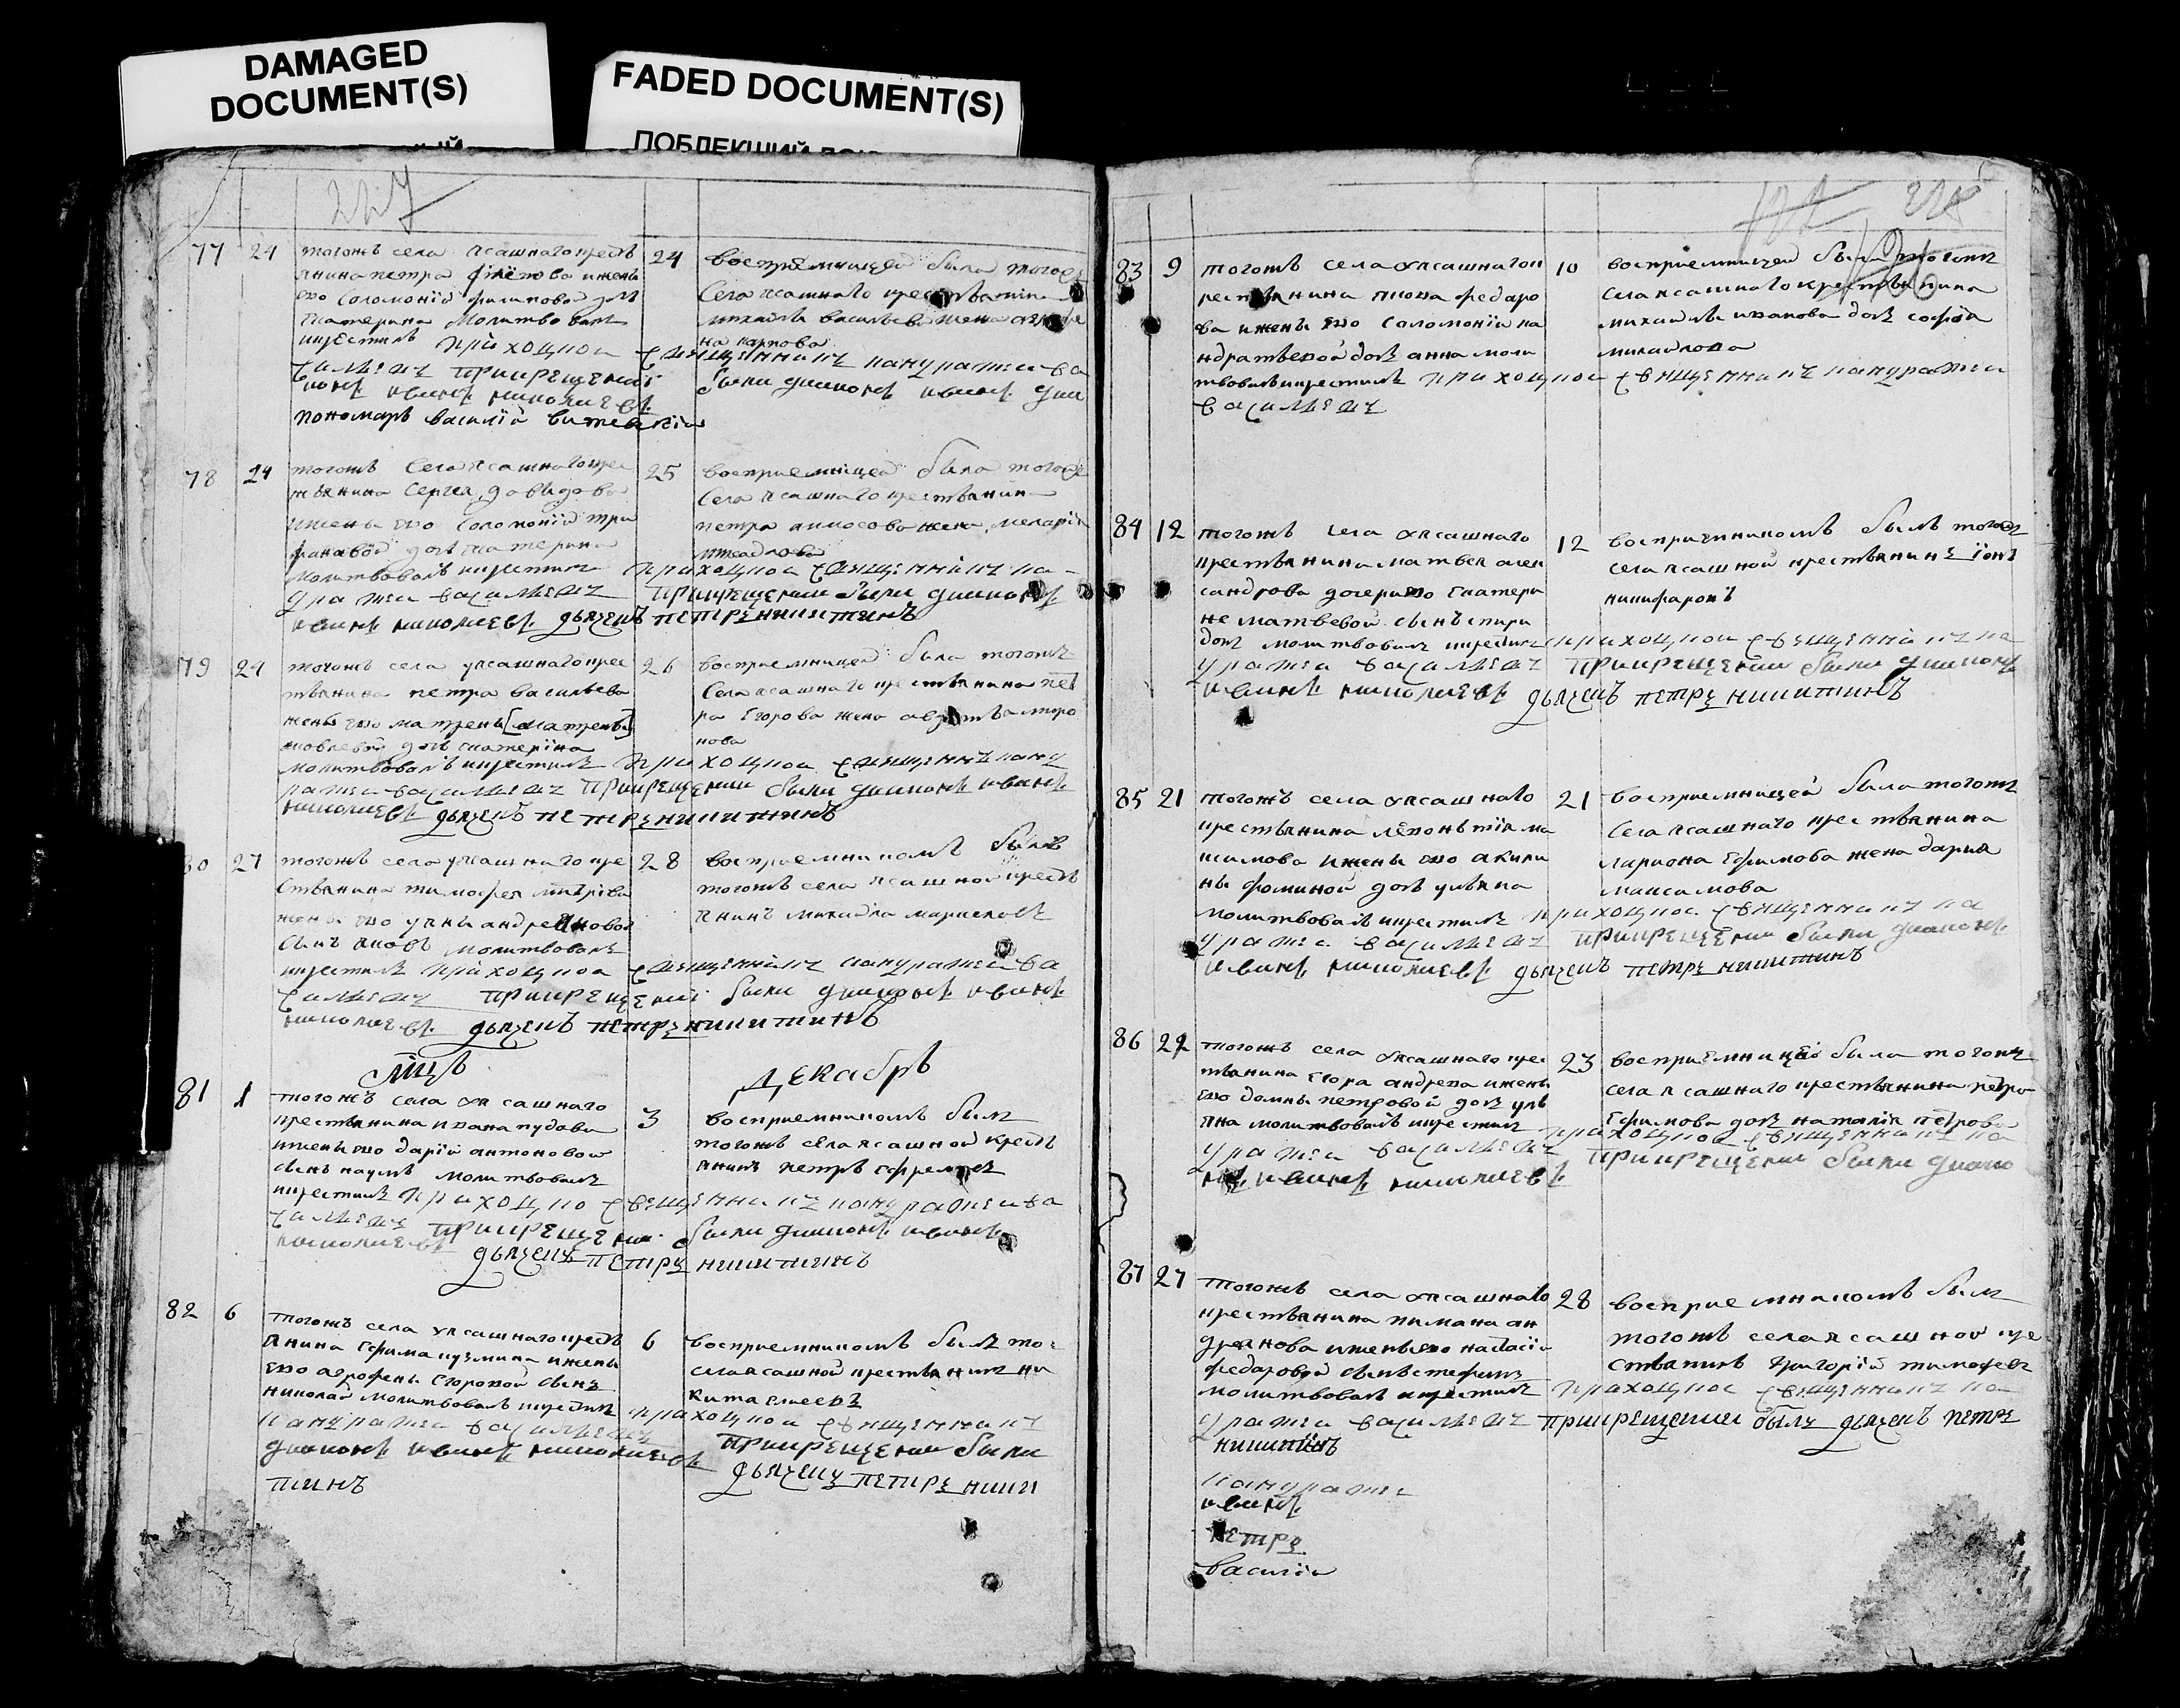 DAMAGED
DOCUMENT(S)
FADED DOCUMENT(S)
ПОБЛЕКШИЙ
227
77 24
тогожъ села ясашнаго кресть
янина петра ижены
его Соломонїи филиповой дочь
Екатерина Молитвовалъ
икрестилъ приходцкой священникъ кандратеи ва
силиевъ прикрещениі были диаконъ иванъ
николаевъ
пономарь василїй
24
восприемницей была тогожъ
Села ясашнаго крестьянина
михаила васильева жена
на карпова
78 24
тогожъ Села ясашнаго крес
тьянина Сергея давыдова
ижены его Соломонїи
дочь екатерина
молитвовалъ икрестилъ приходцкой священникъ кан
дратеи василиевъ прикрещении были диаконъ
иванъ николаевъ дьячекъ петръ никитинъ
25
восприемницей была тогожъ
Села ясашнаго крестьянина
петра амосова жена
79 24
тогожъ села ясашнаго крес
тьянина петра васильева
жены его матрены [матрены]
яковлевой дочь екатерїна
молитвовалъ икрестилъ приходцкой священникъ канд
ратеи василиевъ прикрещении были диаконъ иванъ
николаевъ дьячекъ петръ никитинъ
26
восприемницей была тогожъ
Села ясашнаго крестьянина пет
ра Егорова жена
нова
80 27
тогожъ села ясашнаго кре
стьянина тимофея
жены его андреяновой
сынъ яковъ молитвовалъ
икрестилъ приходцкой священникъ кандратеи ва
силиевъ прикрещениі были диаконъ иванъ
николаевъ дьячекъ петръ никитинъ
28
восприемникомъ былъ
тогожъ села ясашной кресть
янинъ михайла
Мцъ Декабрь
81 1
тогожъ села ясашнаго
крестьянина ивана пудова
ижены его дарїи антоновой
сынъ наумъ молитвовалъ
икрестилъ приходцко священникъ кандратеи ва
силиевъ прикрещении были диаконъ иванъ
николаевъ дьячекъ петръ никитинъ
3
восприемникомъ былъ
тогожъ села ясашной кресть
янинъ петръ ефремовъ
82 6
тогожъ села ясашнаго кресть
янина Ефима кузмина ижены
его агрофены Егоровой сынъ
николай молитвовалъ икрестилъ приходцкой священникъ
кандратеи василиевъ прикрещении были
диаконъ иванъ николаевъ дьячекъ петръ ники
тинъ
6
восприемникомъ былъ то
села ясашной крестьянинъ ни
кита
228
83 9
тогожъ села ясашнаго к
рестьянина федаро
ва ижены его Соломонїи ка
ндратьевой дочь анна моли
твовалъ икрестилъ приходцкой священникъ кандратеи
василиевъ
10
восприемницей была тогожъ
села ясашнаго крестьянина
михаила иванова дочь софїя
михайлова
84 12
тогожъ села ясашнаго
крестьянина матвея алек
сандрова дочери его Екатери
не матвевой сынъ спири
донъ молитвовалъ икрестилъ приходцкой священникъ кан
дратеи василиевъ прикрещении были диаконъ
иванъ николаевъ дьячекъ петръ никитинъ
12
восприемникомъ былъ тогожъ
села ясашной крестьянинъ
никифаровъ
85 21
тогожъ села ясашнаго
крестьянина леонътїя ма
ксимова ижены его акили
ны фоминой дочь ульяна
молитвовалъ икрестилъ приходцкой священникъ кан
дратеи василиевъ прикрещении были диаконъ
иванъ николаевъ дьячекъ петръ никитинъ
21
восприемницей была тогожъ
Села ясашнаго крестьянина
лариона Ефимова жена дарья
максимова
86 22
тогожъ села ясашнаго крес
тьянина Егора андреева ижены
его домны петровой дочь уль
яна молитвовалъ икрестилъ приходцкой священникъ кан
дратеи василиевъ прикрещении были диако
нъ иванъ николаевъ
23
восприемницей была тогожъ
села ясашнаго крестьянина петра
Ефимова дочь наталїя петрова
87 27
тогожъ села ясашнаго
крестьянина пимана ан
дреянова ижены его настасїи
федаровой сынъ стефанъ
молитвовалъ икрестилъ приходцкой священникъ кан
дратеи василиевъ прикрещении былъ дьячекъ петръ
никитинъ
28
восприемникомъ былъ
тогожъ села ясашной кре
стьянинъ Григорїй тимофеевъ
кандратеи
иванъ
петръ
василїи